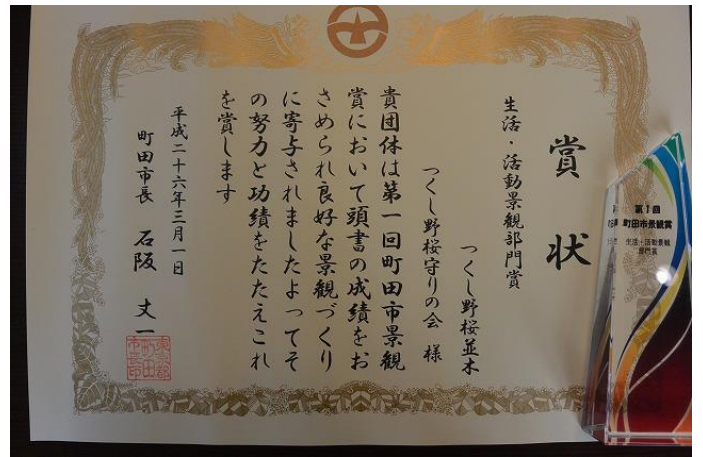 賞状
生活・活動景観部門賞
つくし野桜並木
つくし野桜守りの会 様
貴団体は第一回町田市景観
賞において頭書の成績をお
さめられ良好な景観づくり
に寄与されましたよってそ
の努力と功績をたたえこれ
を賞します
平成二十六年三月一日
町田市長 石阪 丈一
東京都
町田
市長印
第1回
町田市景観賞
生活・活動景観
部門賞